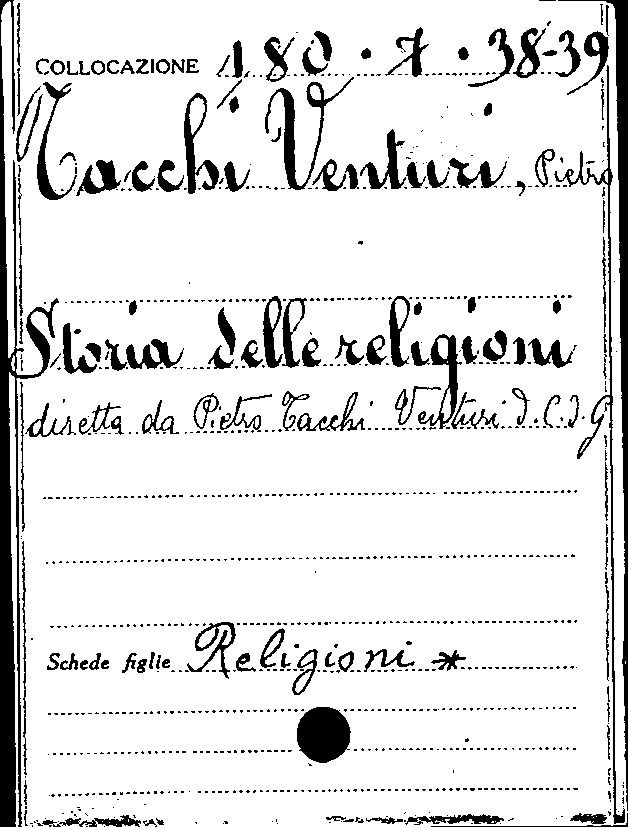 COLLOCAZIONE 180.7.38-39
Tacchi Venturi, Pietro
Storia delle religioni
diretta da Pietro Tacchi Venturi d.C.d.G
Schede figlie Religioni *